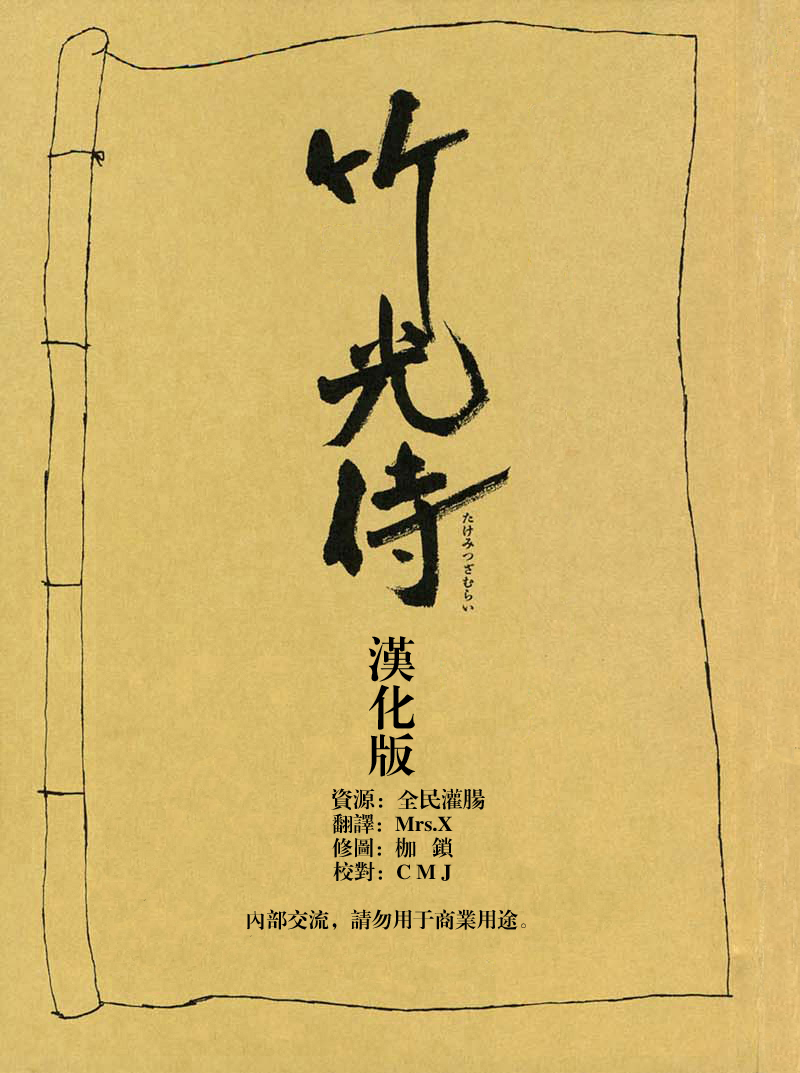 竹光侍
たけみつざむらい
漢化版
資源：全民灌腸
翻譯：Mrs.X
修圖：枷 鎖
校對：C M J
內部交流，請勿用于商業用途。